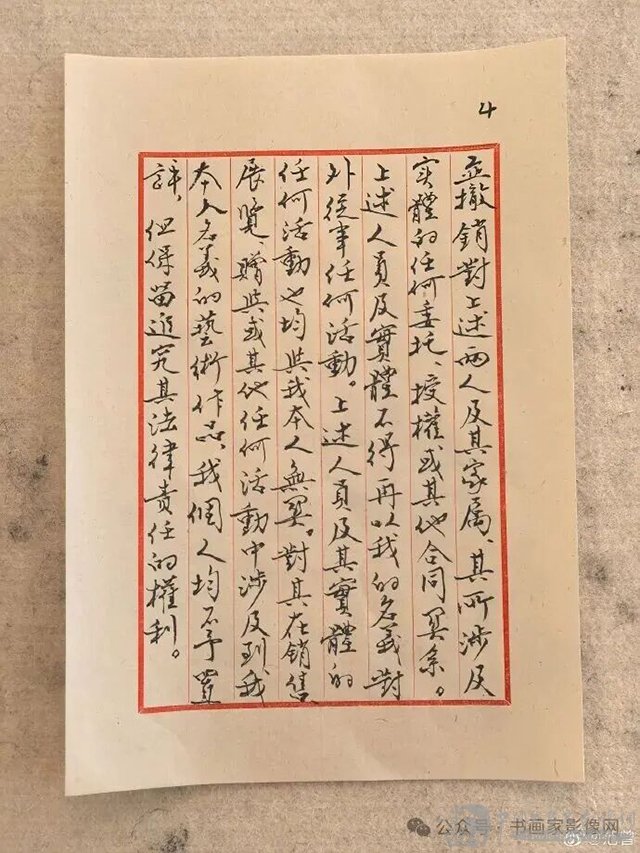 4
并撤销對上述兩人及其家属、其所涉及
实體的任何委托、授權或其他合同関系。
上述人员及實體不得再以我的名義對
外從事任何活動。上述人员及其實體的
任何活動也均與我本人無関。對其在銷售
展覽、贈與或其他任何活動中涉及到我
本人名義的藝術作品，我個人均不予置
評，但保留追究其法律責任的權利。
公众号·书画家影像网